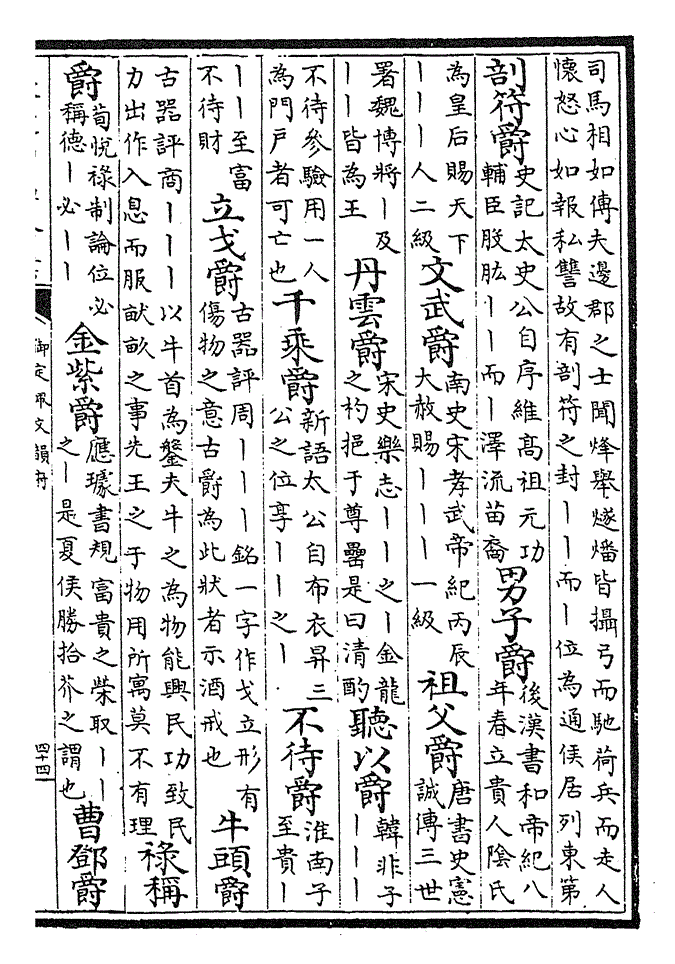 司馬相如傳夫邊郡之士聞烽舉燧燔皆攝弓而馳荷兵而走人
懷怒心如報私讐故有剖符之封丨丨而丨位為通侯居列東第
剖符爵 史記太史公自序維高祖元功輔臣股肱丨丨而丨澤流苗裔 男子爵 後漢書和帝紀八年春立貴人陰氏
為皇后賜天下丨丨丨人二級 文武爵 南史宋孝武帝紀丙辰大赦賜丨丨丨一級 祖父爵 唐書史憲誠傳三世
署魏博將丨及丨丨皆為王 丹雲爵 宋史樂志丨丨之丨金龍之杓挹于尊罍是曰清酌 聽以爵 韓非子丨丨丨
不待參驗用一人為門戶者可亡也 千乘爵 新語太公自布衣昇三公之位享丨丨之丨 不待爵 淮南子至貴丨
丨丨至富不待財 立戈爵 古器評周丨丨丨銘一字作戈立形有傷物之意古爵為此狀者示酒戒也 牛頭爵
古器評商丨丨丨以牛首為鋬夫牛之為物能興民功致民力出作入息而服畎畝之事先王之于物用所寓莫不有理 祿稱
爵 荀悅祿制論位必稱德丨必丨丨 金紫爵 應璩書規富貴之榮取丨丨之丨是夏侯勝拾芥之謂也 曹鄧爵
御定佩文韻府
四十四